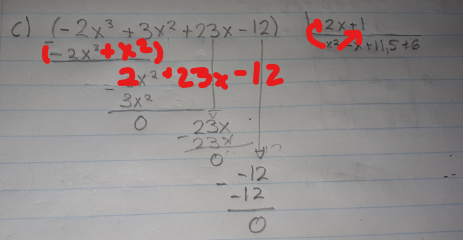 c) (-2x³ + 3x² + 23x - 12) | -2x+1
(-2x³ + x²) x² - x + 11,5 + 6
- 2x² + 23x - 12
3x²
0
- 23x
23x
0
- -12
-12
0